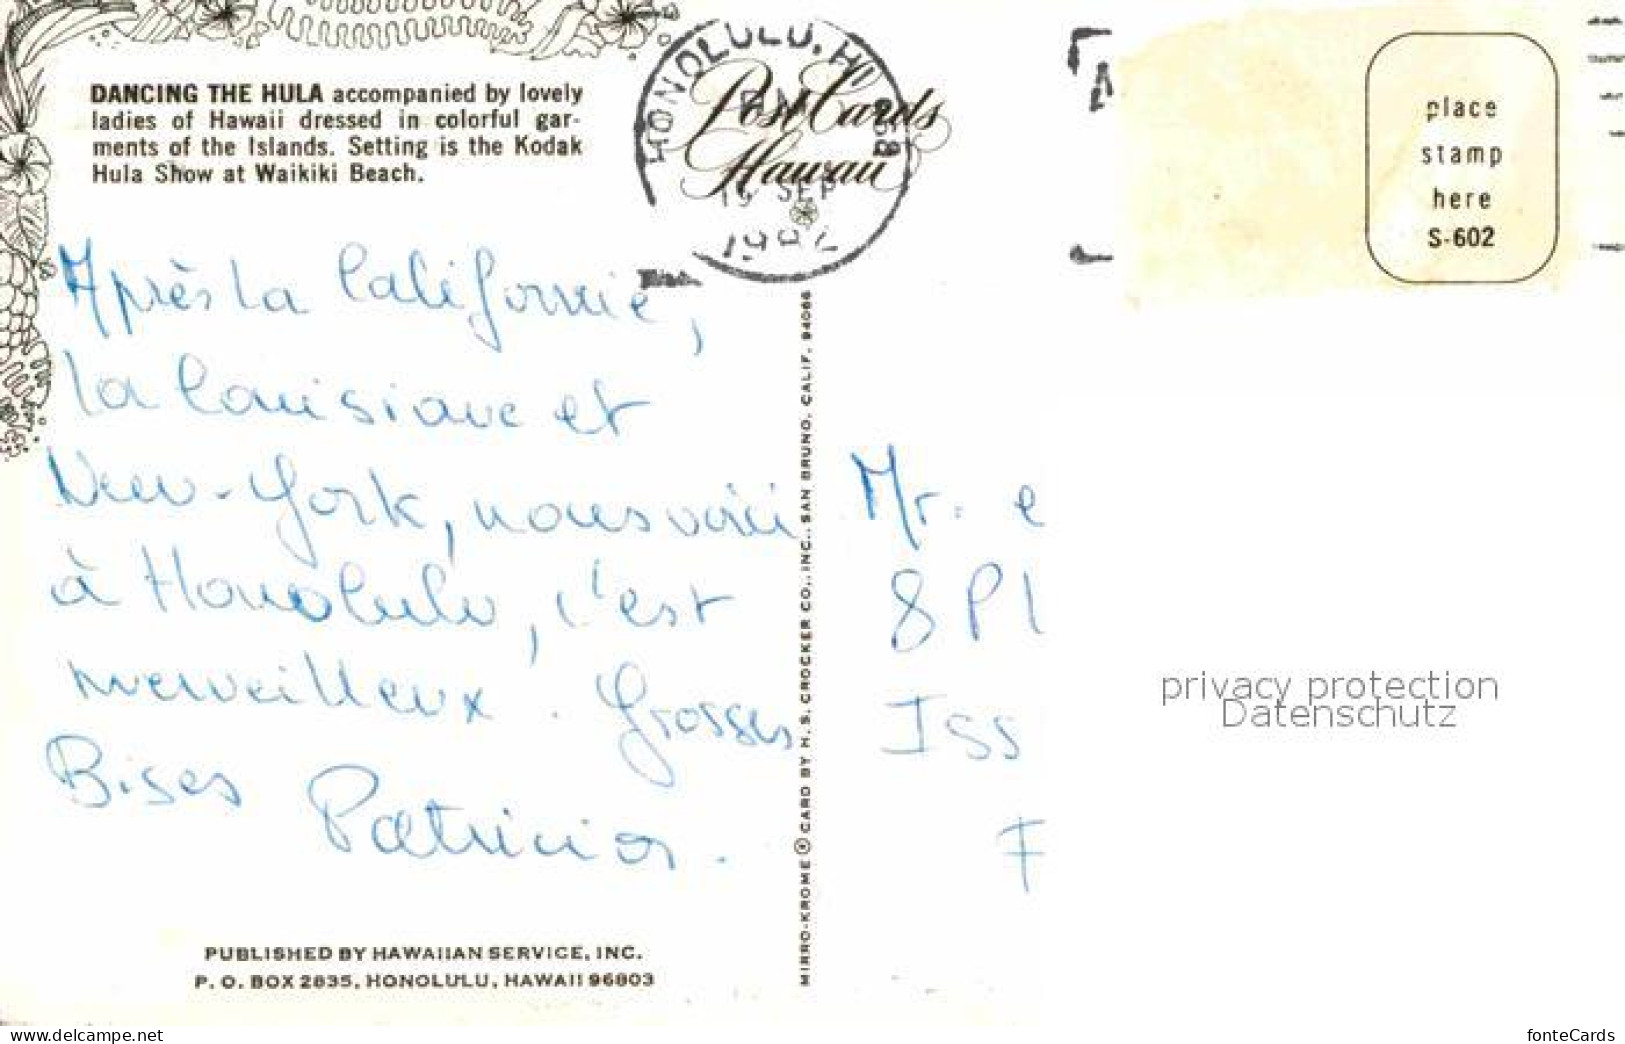 DANCING THE HULA accompanied by lovely
ladies of Hawaii dressed in colorful gar-
ments of the Islands. Setting is the Kodak
Hula Show at Waikiki Beach.
HONOLULU, HI
PM
968
19 SEP
Post Cards
Hawaii
place
stamp
here
S-602
Après la Californie,
la Louisiane et
New-York, nous voici
à Honolulu, c'est
merveilleux. Grosses
Bises
Patricia.
MIRRO-KROME ® CARD BY H. S. CROCKER CO., INC., SAN BRUNO, CALIF. 94066
Mr. e
8 Pl
Iss
F
privacy protection
Datenschutz
PUBLISHED BY HAWAIIAN SERVICE, INC.
P. O. BOX 2835, HONOLULU, HAWAII 96803
www.delcampe.net
fonteCards